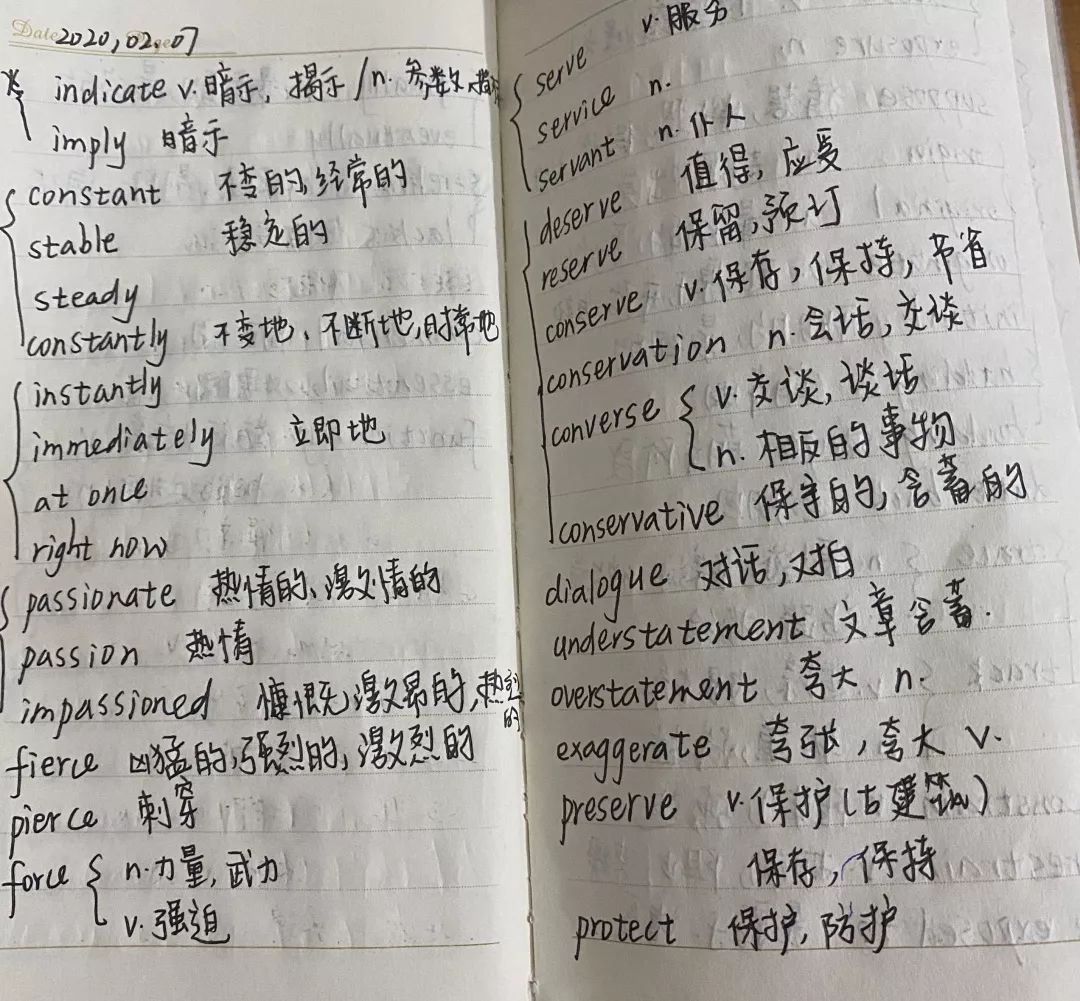 Date 2020,02.07
indicate v.暗示, 揭示 / n.参数,指示
imply 暗示
constant 不变的,经常的
stable 稳定的
steady
constantly 不变地、不断地,时常地
instantly
immediately 立即地
at once
right now
passionate 热情的、激情的
passion 热情
impassioned 慷慨激昂的,热烈的
fierce 凶猛的,强烈的,激烈的
pierce 刺穿
force { n.力量,武力
v.强迫
serve v.服务
service n.
servant n.仆人
deserve 值得,应受
reserve 保留,预订
conserve v.保存,保持,节省
conservation n.会话,交谈
converse { v.交谈,谈话
n.相反的事物
conservative 保守的,含蓄的
dialogue 对话,对白
understatement 文章含蓄.
overstatement 夸大 n.
exaggerate 夸张,夸大 v.
preserve v.保护(古建筑)
保存,保持
protect 保护,防护